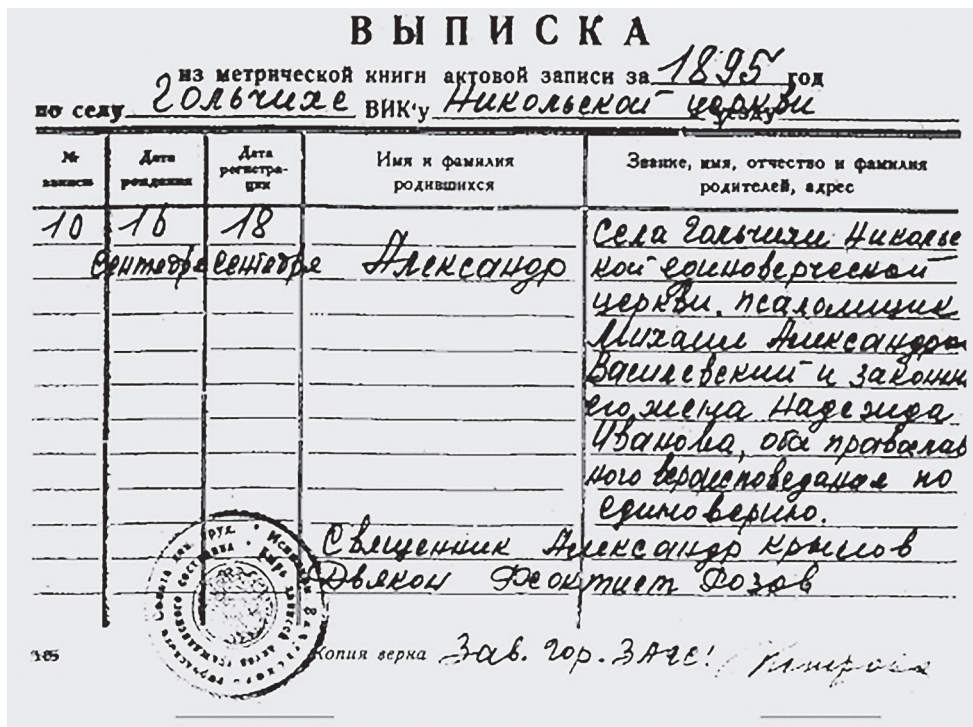 ВЫПИСКА
из метрической книги актовой записи за 1895 год
по селу Гольчихе ВИК'у Никольской церкви
№ записи
Дата рождения
Дата регистра-
ции
Имя и фамилия
родившихся
Звание, имя, отчество и фамилия
родителей, адрес
10 16 18
Сентября Сентября Александр
Села Гольчихи Николь
ской единоверческой
церкви, псаломщик
Михаил Александров
Василевский и законн
его жена Надежда
Иванова, оба православ
ного вероисповедания по
единоверию.
Священник Александр Крылов
Дьякон Феоктист Розов
Копия верна Зав. Гор. ЗАГС!